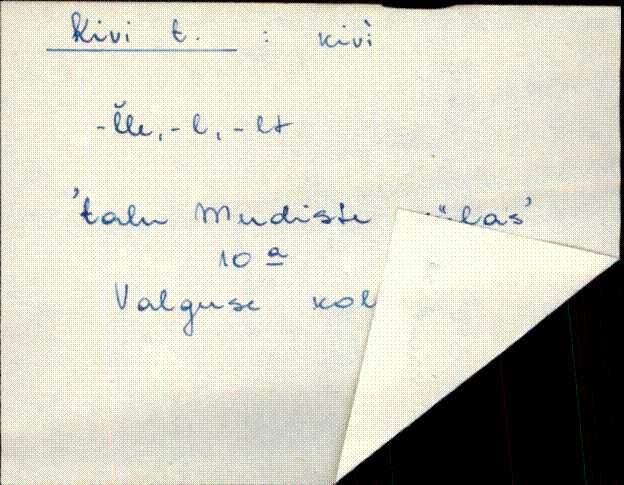 Kivi t. : kivì
-l̆le, -l, -lt
'talu Mudiste las'
10 a
Valguse kol